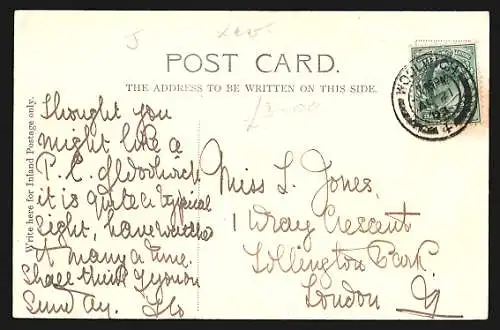 POST CARD.
THE ADDRESS TO BE WRITTEN ON THIS SIDE.
£3-00
Write here for Inland Postage only.
Thought you
might like a
P.C. of Woolwich
it is quite a typical
sight, have watched
it many a time.
Shall think of you on
Sunday. Flo
Miss L. Jones.
1 Wray Crescent
Tollington Park.
London N
WOOLWICH